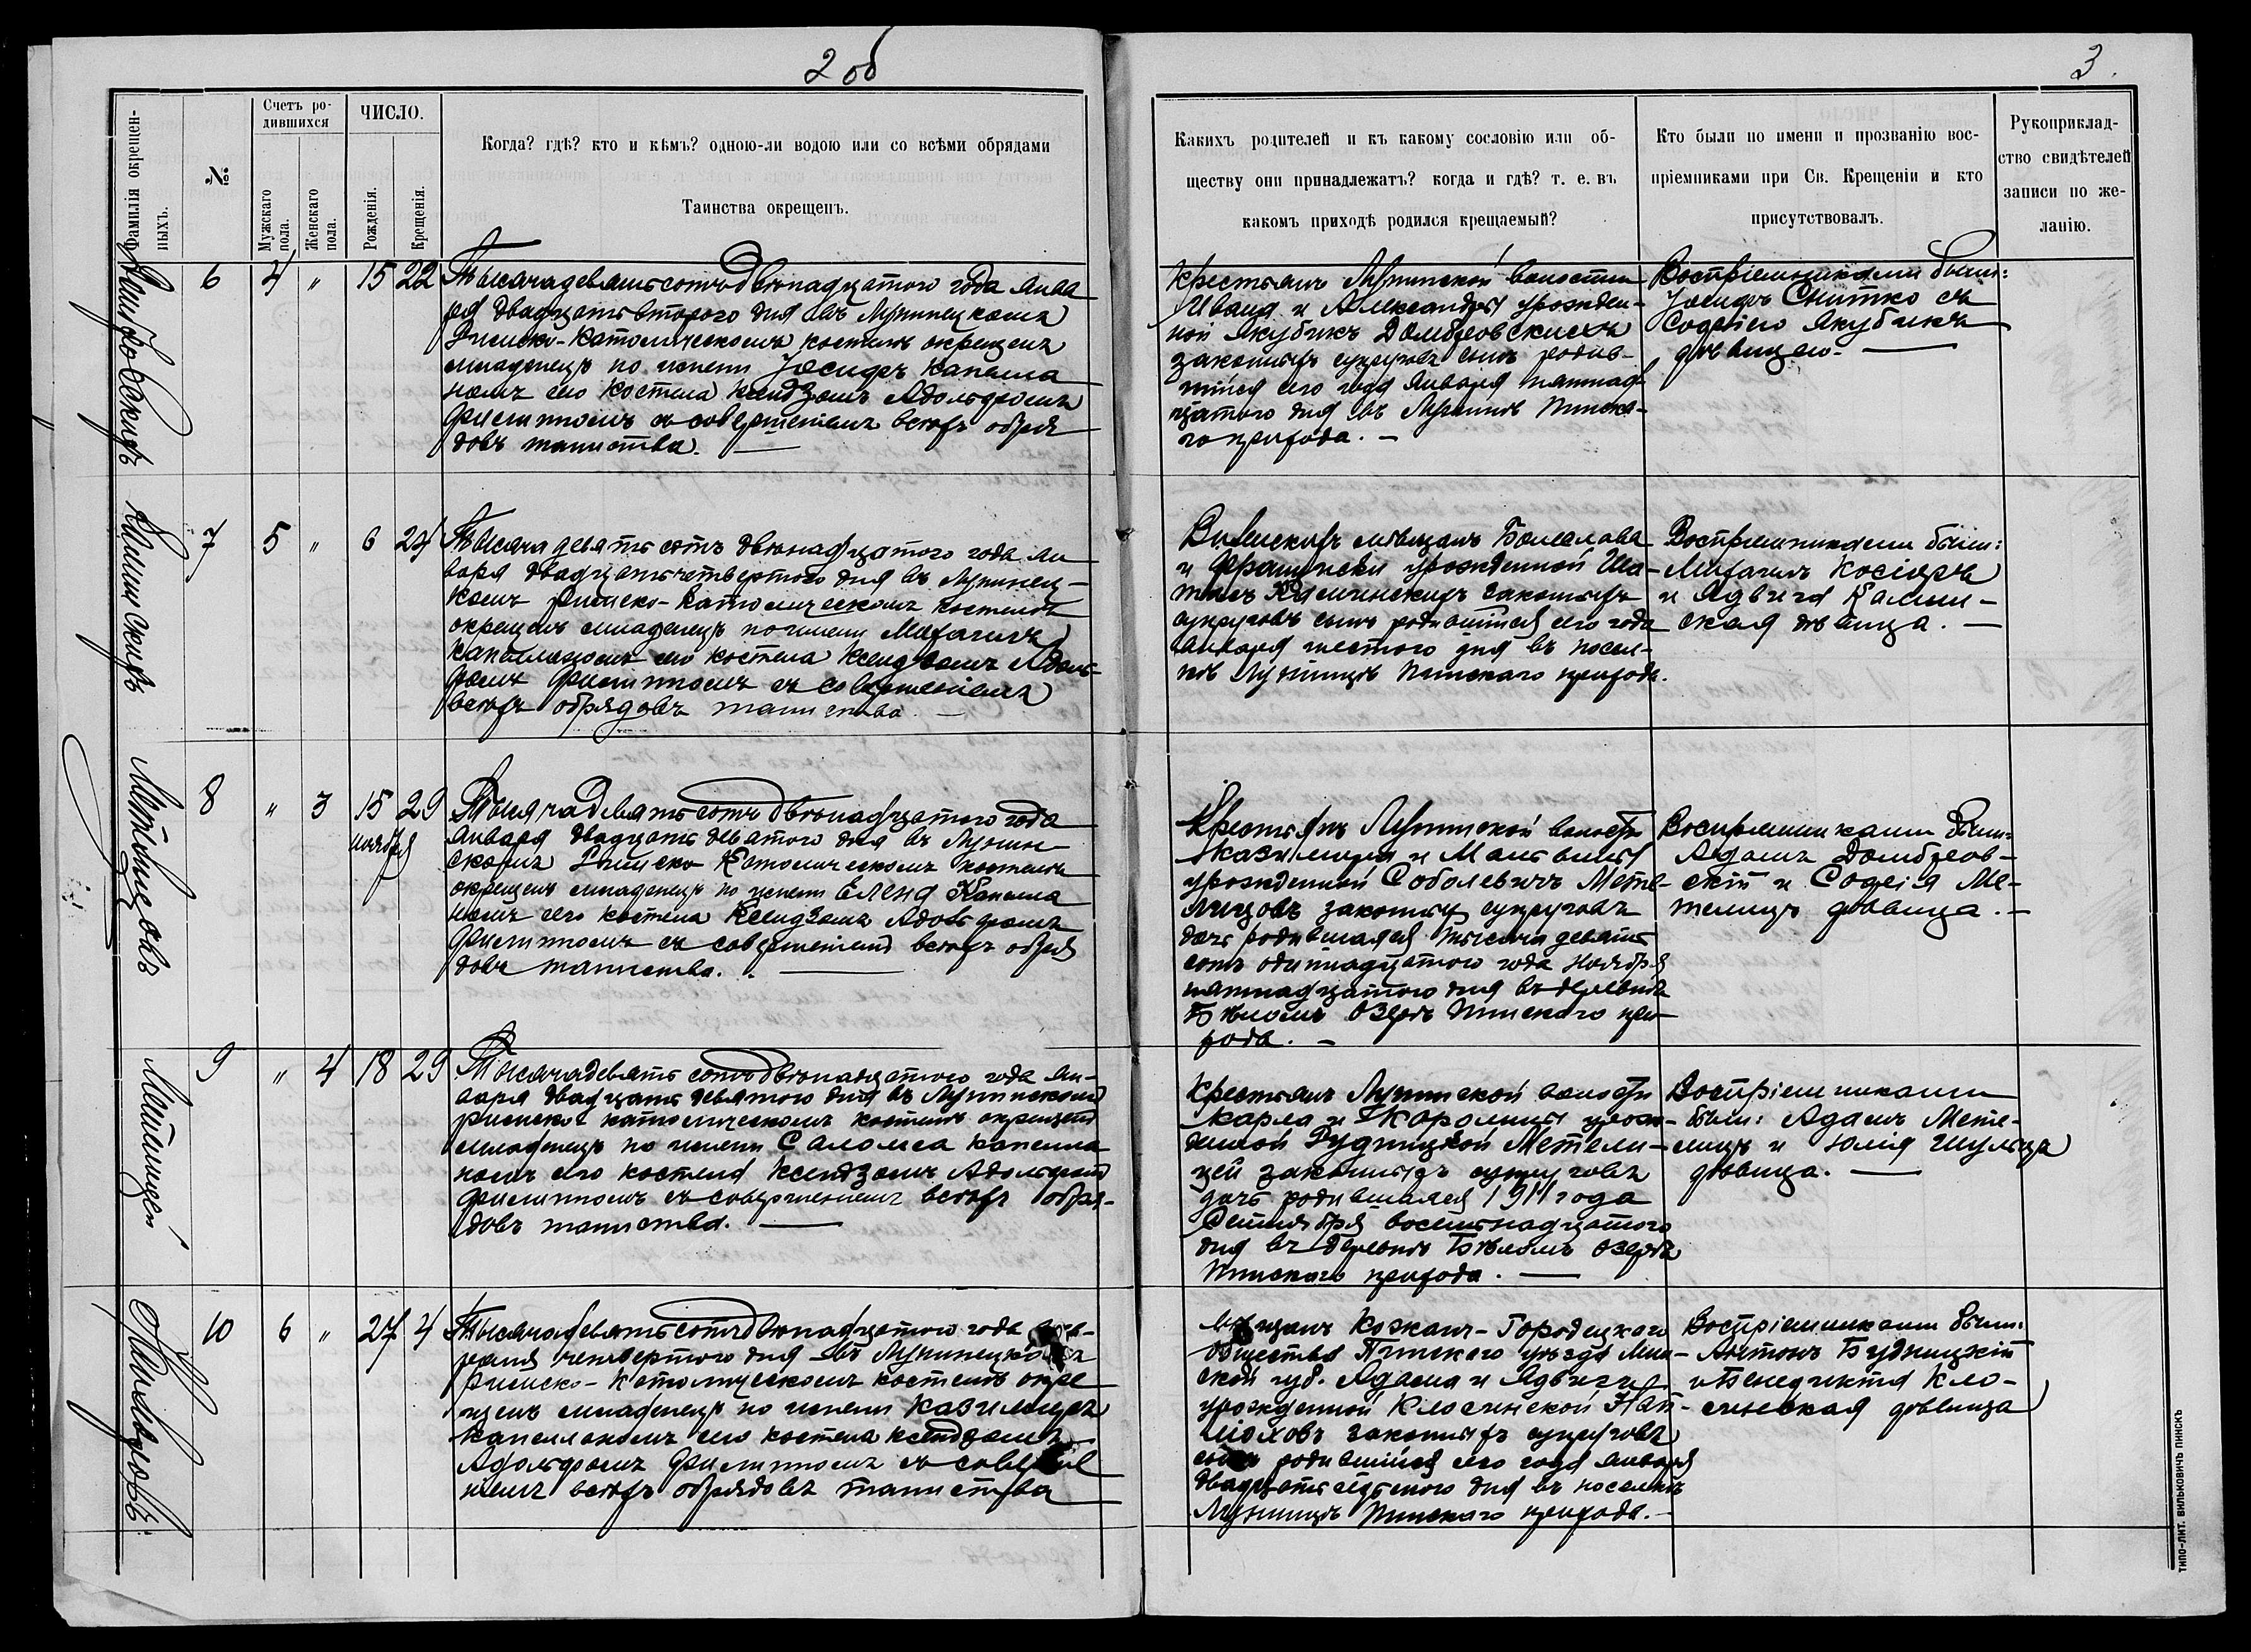 2 об
3.
Фамилія окрещен-
ныхъ.
№
Счетъ ро-
дившихся
Мужскаго
пола.
Женскаго
пола.
ЧИСЛО.
Рожденія.
Крещенія.
Когда? гдѣ? кто и кѣмъ? одною-ли водою или со всѣми обрядами
Таинства окрещенъ.
Какихъ родителей и къ какому сословію или об-
ществу они принадлежатъ? когда и гдѣ? т. е. въ
какомъ приходѣ родился крещаемый?
Кто были по имени и прозванію вос-
пріемниками при Св. Крещеніи и кто
присутствовалъ.
Рукоприклад-
ство свидѣтелей
записи по же-
ланію.
6 4 " 15 22
Тысяча девятьсотъ двѣнадцатого года Янва
ря двадцать второго дня въ Лунинецкомъ
Римско-Католическомъ костелѣ окрещенъ
младенецъ по имени Іосифъ Капелла
номъ сего костела Ксендзомъ Адольфомъ
Филиппомъ съ совершеніемъ всѣхъ обря
довъ таинства. —
Крестьянъ Лунинской волости
Ивана и Александры урожден-
ной Якубикъ Домбровскихъ
законныхъ супруговъ сынъ родив-
шійся сего года Января пятнад-
цатого дня въ Лунинѣ Пинска-
го прихода. —
Воспріемниками были:
Іосифъ Снитко съ
Софіею Якубикъ
дѣвицею. —
Каминскихъ
7 5 " 6 24
Тысяча девятьсотъ двѣнадцатого года Ян
варя двадцать четвертого дня въ Лунинец-
комъ римско-католическомъ костелѣ
окрещенъ младенецъ по имени Михаилъ
Капелланомъ сего костела Ксендзомъ Адоль-
фомъ Филиппомъ съ совершеніемъ
всѣхъ обрядовъ таинства —
мѣщанъ Болеслава
и Франциски урожденной
законныхъ
супруговъ сынъ родившійся сего года
Января шестого дня въ посел-
кѣ Лунинцѣ Пинскаго прихода.
Воспріемниками были:
Михаилъ
и Ядвига Камин-
ская дѣвица. —
8 " 3 15 29
ноября
Тысяча девятьсотъ двѣнадцатого года
Января двадцать девятого дня въ Лунин
скомъ Римско Католическомъ костелѣ
окрещенъ младенецъ по имени Елена Капелла
номъ сего костела Ксендзомъ Адольфомъ
Филиппомъ съ совершеніемъ всѣхъ обря
довъ таинства. —
Крестьянъ Лунинской волости
Казимира и
урожденной Соболевичъ Мете-
лицовъ законныхъ супруговъ
дочь родившаяся тысяча девять
сотъ одиннадцатого года Ноября
пятнадцатого дня въ деревнѣ
Бѣломъ Озерѣ Пинскаго при
хода. —
Воспріемниками были:
Адамъ Домбров-
скій и Софія Ме-
телицъ дѣвица. —
9 " 4 18 29
Тысяча девятьсотъ двѣнадцатого года Ян-
варя двадцать девятого дня въ Лунинскомъ
римско-католическомъ костелѣ окрещенъ
младенецъ по имени Саломеа Капелла
номъ сего костела Ксендзомъ Адольфомъ
Филиппомъ съ совершеніемъ всѣхъ обря-
довъ таинства. —
Крестьянъ Лунинской волости
Карла и Каролины урож-
денной Рудницкой Метели-
цей законныхъ супруговъ
дочь родившаяся 1911 года
Сентября восемнадцатого
дня въ деревнѣ Бѣломъ Озерѣ
Пинскаго прихода. —
Воспріемниками
были: Адамъ Мете-
лицъ и Юлія Шульца
дѣвица. —
10 6 " 27 4
Тысяча девятьсотъ двѣнадцатого года Фев-
раля четвертого дня въ Лунинецкомъ
Римско-Католическомъ костелѣ окре
щенъ младенецъ по имени Казимиръ
Капелланомъ сего костела Ксендзомъ
Адольфомъ Филиппомъ съ соверше
ніемъ всѣхъ обрядовъ таинства
Мѣщанъ Кожанъ-Городецкаго
Общества Пинскаго уѣзда Мин-
ской губ. Адама и Ядвиги
урожденной Клосинской
законныхъ супруговъ
сынъ родившійся сего года Января
двадцать седьмого дня въ поселкѣ
Лунинцѣ Пинскаго прихода. —
Воспріемниками были:
Антонъ Будницкій
и Бенедикта Кло-
синская дѣвица
ТИПО-ЛИТ. ВИЛЬКОВИЧЪ ПИНСКЪ